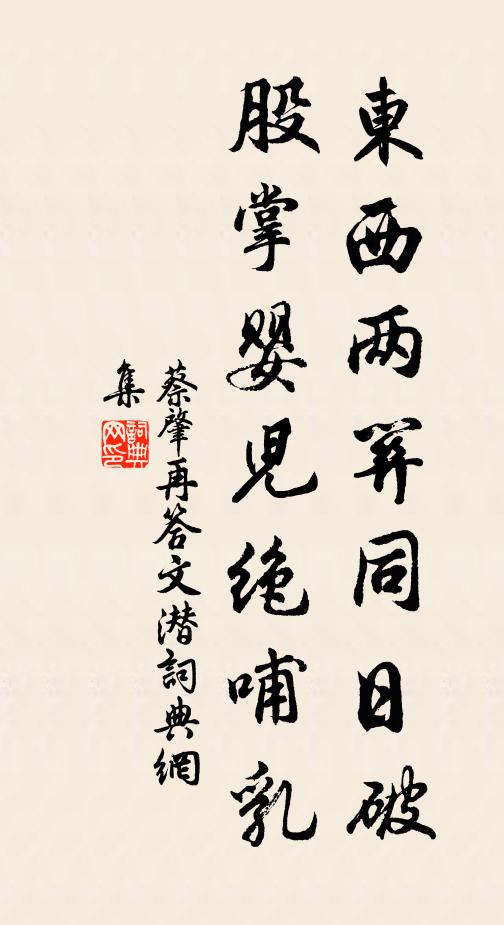 東西两同日破
股掌嬰児絶哺乳
蔡肇再答文潜詞典網
集
詞典
网印